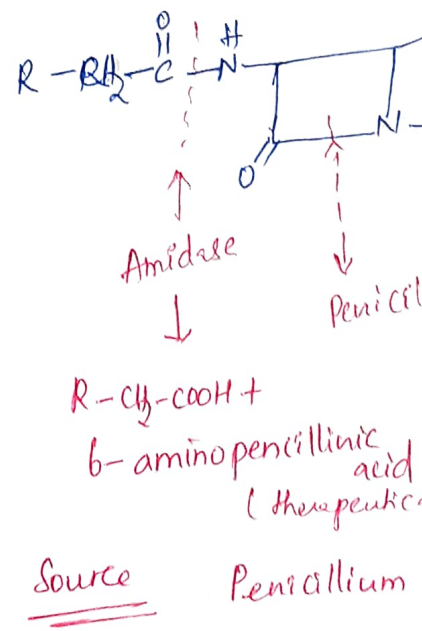 O H
R - CH2 - C - N
N
O
Amidase
Penicil
R - CH2 - COOH +
6- aminopencillinic
acid
( therapeutic
Source Penicillium